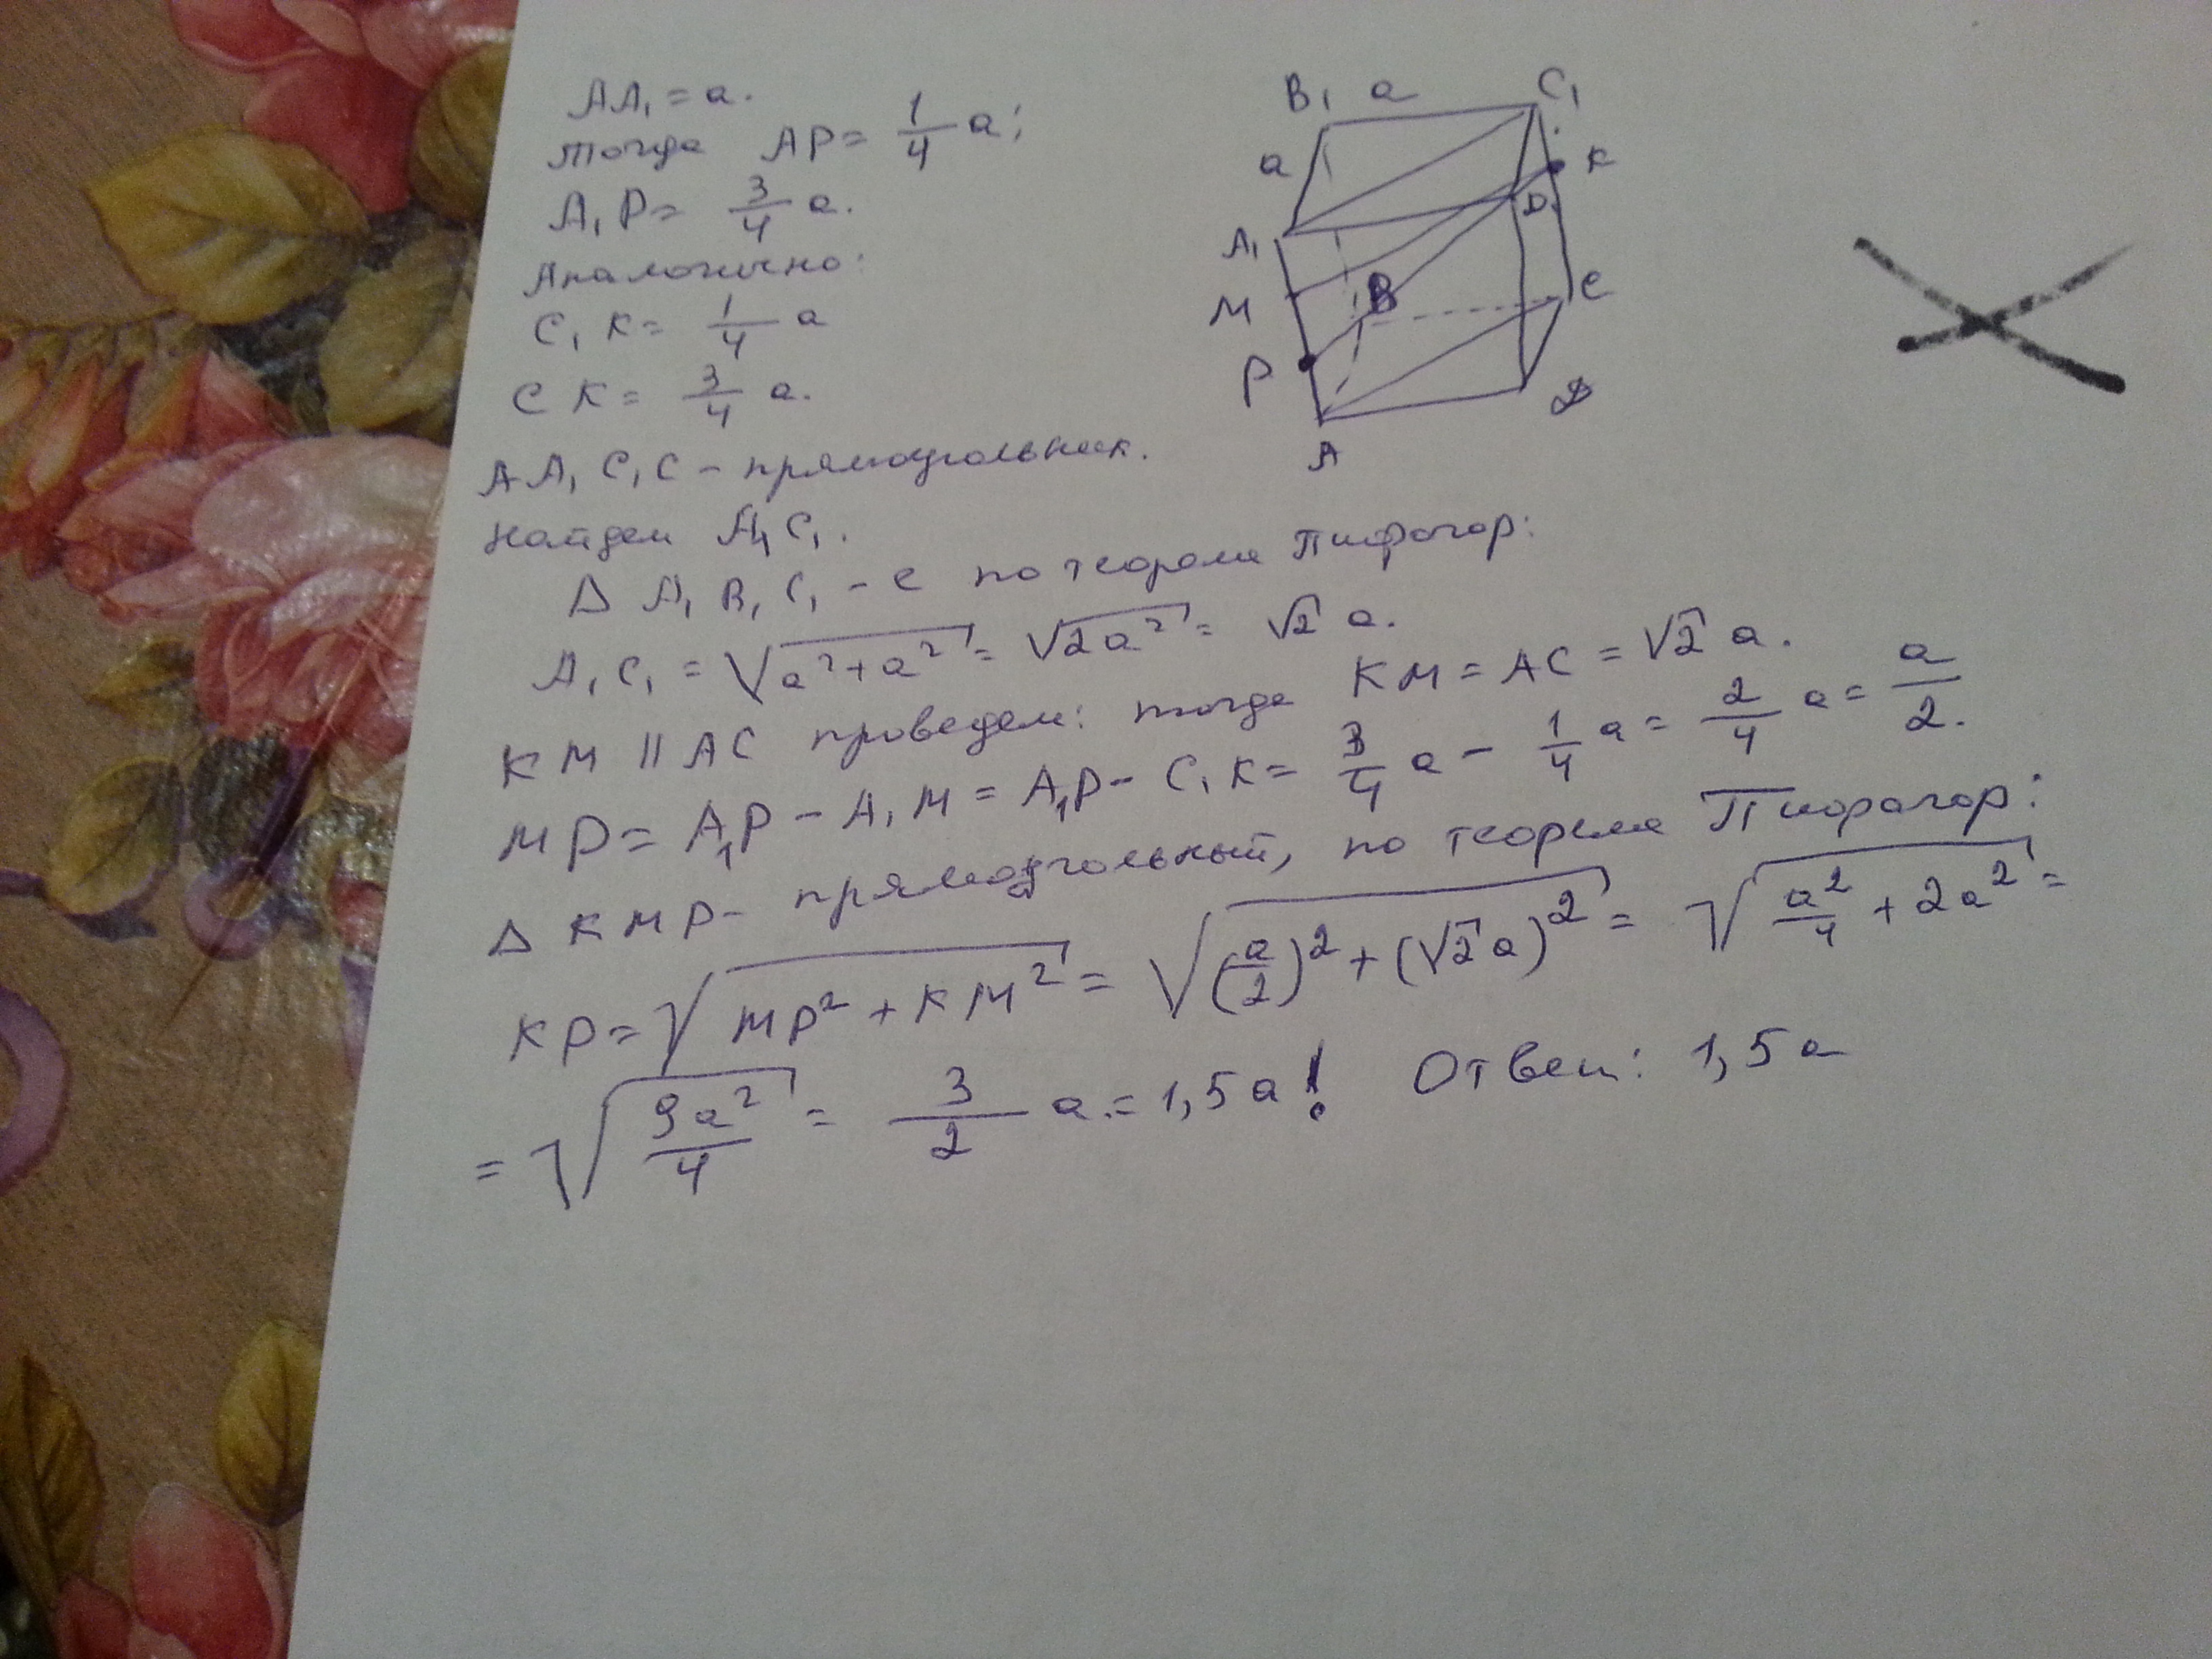 AA₁ = a.
тогда AP = 1/4 a;
A₁P = 3/4 a.
Аналогично:
C₁K = 1/4 a
CK = 3/4 a.
AA₁C₁C - прямоугольник.
Найдем A₁C₁.
Δ A₁B₁C₁ - с по теореме Пифагор:
A₁C₁ = √(a² + a²) = √(2a²) = √2 a.
KM || AC проведем: тогда KM = AC = √2 a.
MP = A₁P - A₁M = A₁P - C₁K = 3/4 a - 1/4 a = 2/4 a = a/2.
Δ KMP - прямоугольный, по теореме Пифагор:
KP = √(MP² + KM²) = √((a/2)² + (√2 a)²) = √(a²/4 + 2a²) =
= √(9a²/4) = 3/2 a. = 1,5a! Ответ: 1,5a
B₁ a C₁
a K
A₁ D₁
M B C
P
A D